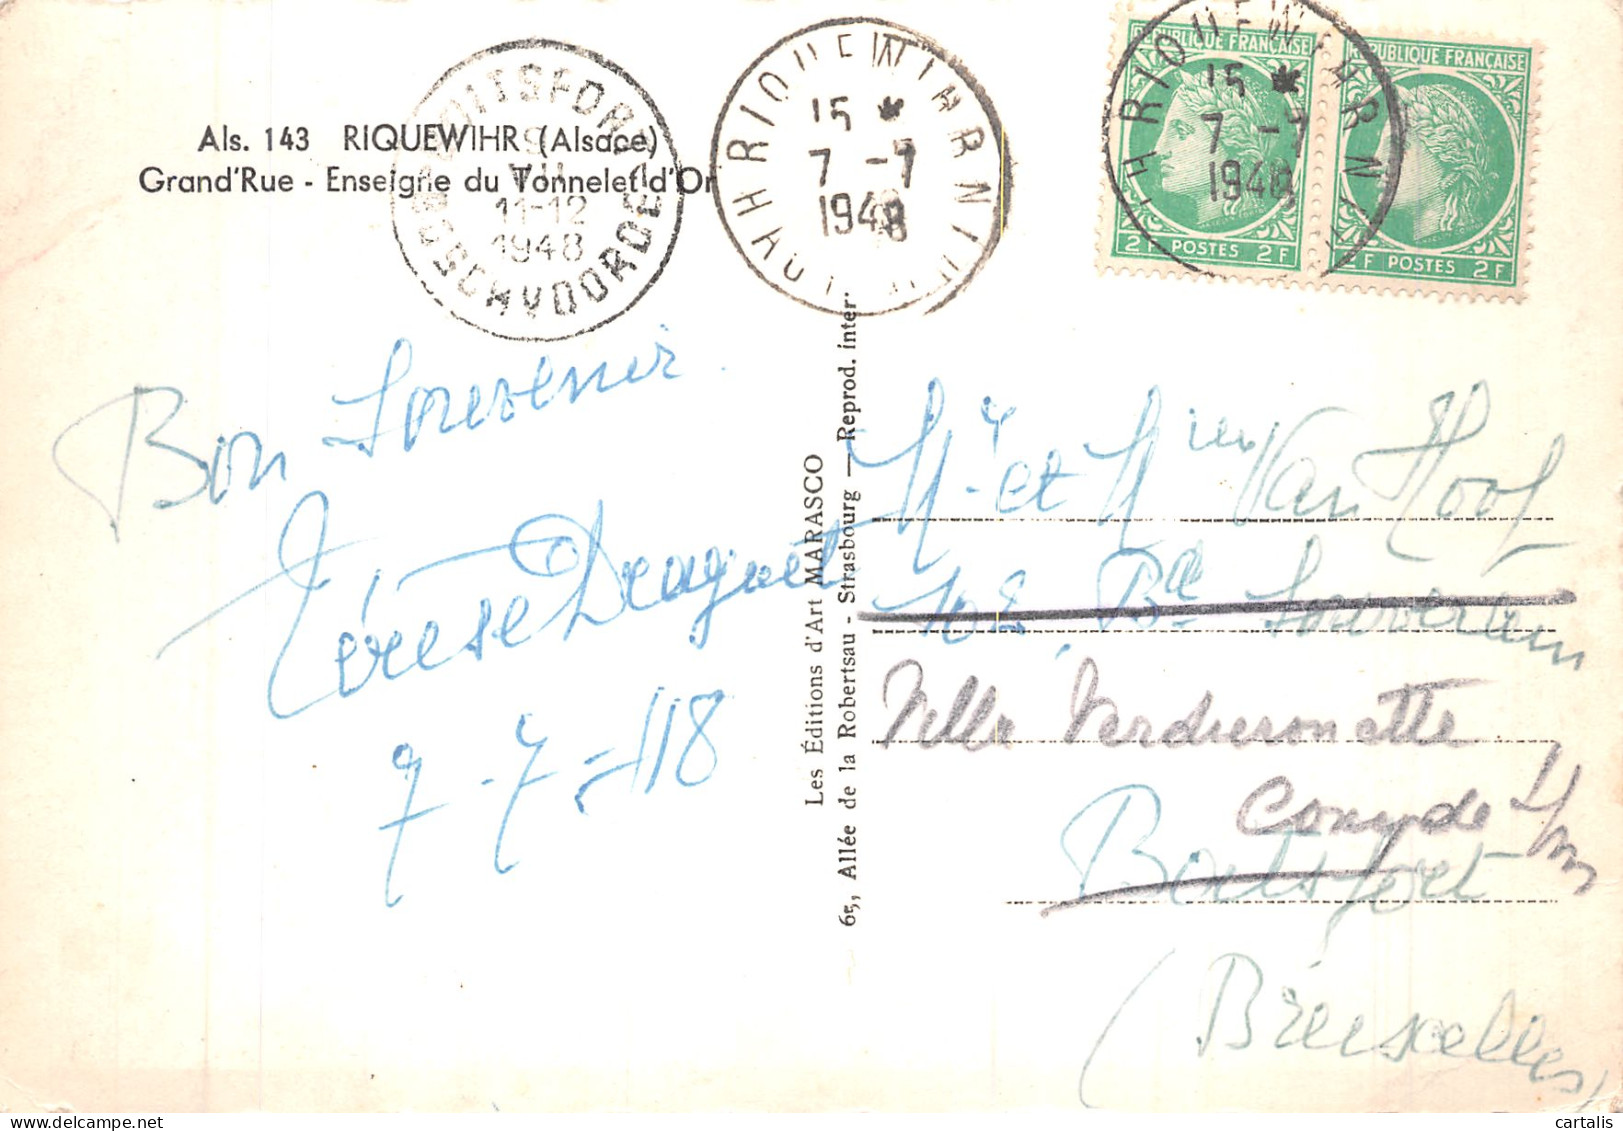 Als. 143 RIQUEWIHR (Alsace)
Grand'Rue - Enseigne du Tonnelet d'Or
BOITSFORT
VII
11-12
1948
BOSCHVOORDE
RIQUEWIHR
15 *
7 -7
1948
HAUT-RHIN
RIQUEWIHR
15 *
7 -7
1948
RÉPUBLIQUE FRANÇAISE
2F POSTES 2F
RÉPUBLIQUE FRANÇAISE
2F POSTES 2F
Bon Souvenir
Térèse Draguet
7-7-48
Les Éditions d'Art MARASCO
65, Allée de la Robertsau - Strasbourg — Reprod. inter.
Mr et Mme Van Hoof
102, Bd Souverain
Villa
Coxyde s/m
Boitsfort
(Bruxelles)
cartalis